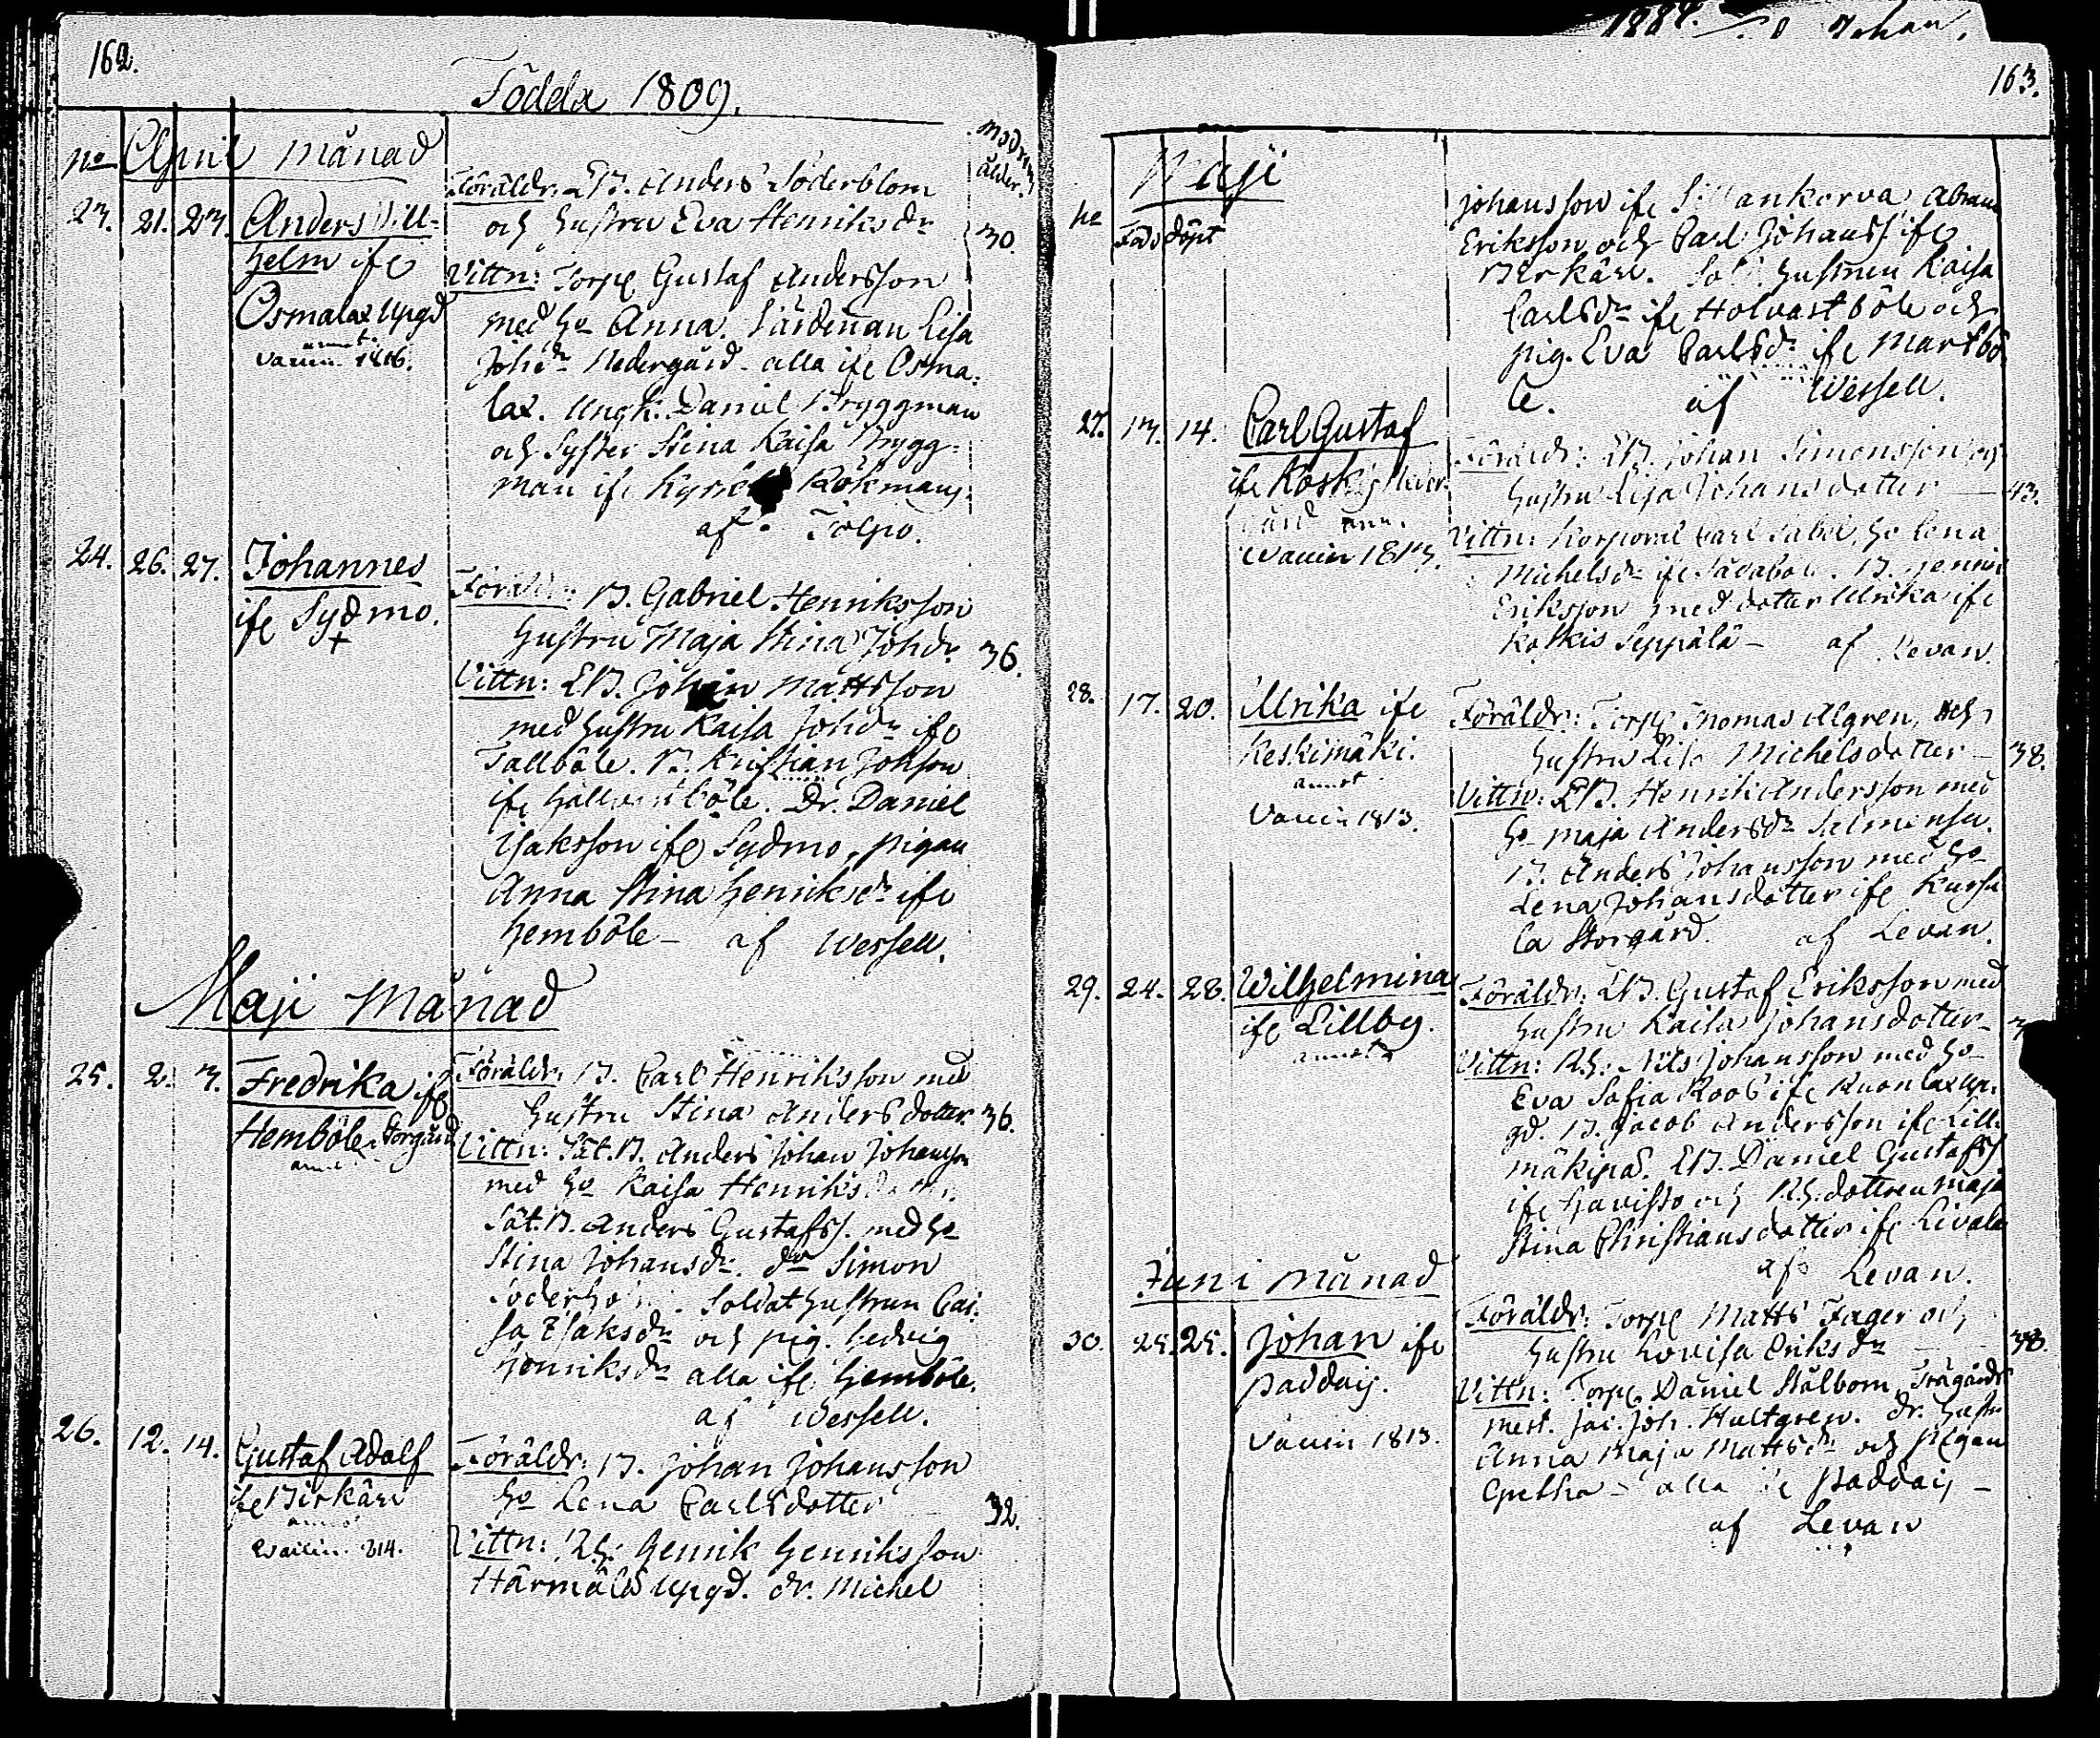 162.
Födda 1809.
no April månad
Modrens ålder.
23. 21. 23. Anders Will-
helm ifr
Osmalax Upgd
annot.
Vaccin 1816.
Föräldr. LB. Anders Söderblom
och hustru Eva Henriksdr 30.
Vittn: Torp. Gustaf Andersson
med ho Anna. Lisa
Johdr Nedergård alla ifr Osma-
lax. Ungk. Daniel Bryggman
och Syster Stina Kaisa Brygg-
man ifr
af Tolpo.
24. 26. 27. Johannes
ifr Sydmo.
+
Föräldr: B. Gabriel Henriksson
hustru Maja Stina Johdr 36.
Vittn: LB. Johan Mattsson
med hustru Kaisa Johdr ifr
Tallböle. B. Kristian Johsson
ifr böle. Dr. Daniel
Isaksson ifr Sydmo, pigan
Anna Stina Henriksdr ifr
Hemböle – af Wessell.
Maji Månad
25. 2. 3. Fredrika ifr
Hemböle Storgård
Föräldr: B. Carl Henriksson med
hustru Stina Andersdotter. 36.
Vittn: Sät.B. Anders Johan Johansson
med ho Kaisa Henriks
Sät.B. Anders Gustafss. med ho
Stina Johansdr. dr Simon
Soldathustrun Cai-
sa Isaksdr och pig. Hedvig
Henriksdr alla ifr Hemböle.
af Wessell.
26. 12. 14. Gustaf Adolf
ifr Birkäri
Vaccin. 814.
Föräldr: B. Johan Johansson
ho Lena Carlsdotter 32.
Vittn: Rh: Henrik Henriksson
Härmälä Upgd. dr. Michel
163.
Maji
no Föd döpt
Johansson ifr Sillankorva Abram
Eriksson och Carl Johanss ifr
Birkäri. hustrun Kaisa
Carlsdr ifr Holvastböle och
pig. Eva Carlsdr ifr Martbö-
le. af Wessell.
27. 13. 14. Carl Gustaf
ifr Koskis Neder-
gård ann.
Vaccin 1813.
Föräldr: LB. Johan Simonsson och
hustru Lisa Johansdotter — 43.
Vittn: Korporal Carl ho Lena
Michelsdr ifr B. Henrik
Eriksson med dotter Ulrika ifr
Koskis Seppälä – af Levan.
28. 17. 20. Ulrika ifr
Keskimäki.
annot
Vaccin 1813.
Föräldr: Torp. Thomas Algren, och
hustru Lisa Michelsdotter – 38.
Vittn: LB. Henrik Andersson med
ho Maja Andersdr
B. Anders Johansson med ho
Lena Johansdotter ifr Kurse-
la Storgård. af Levan.
29. 24. 28. Wilhelmina
ifr Lillby.
annot
Föräldr: LB. Gustaf Eriksson med
hustru Kaisa Johansdotter –
Vittn: Rh: Nils Johansson med ho
Eva Sofia Roos ifr Ruonlax Up-
gd. B. Jacob Andersson ifr Lill-
mäkipä. LB. Daniel Gustafss
ifr Havisto och Rh: dottren Maja
Stina Christiansdotter ifr Livala
af Levan.
Juni Månad
30. 25. 25. Johan ifr
Paddais.
Vaccin 1813.
Föräldr: Torp Matts Fager och
hustru Lovisa Eriksdr 38.
Vittn: Torp. Daniel Stålbom, Trägårds
mest. Jac. Joh. Hultgren. dr. hustr
Anna Maja Mattsdr och pigan
Gretha – alla ifr Paddais –
af Levan